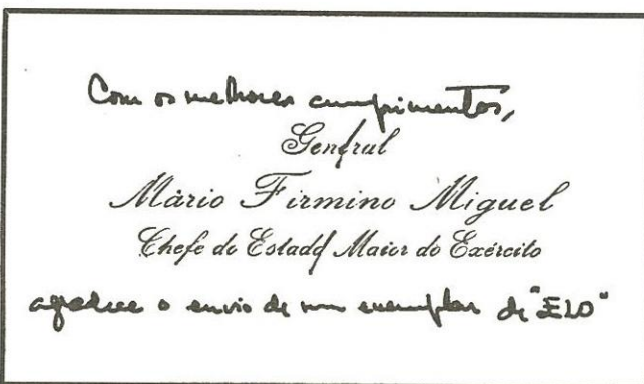 Com os melhores cumprimentos,
General
Mário Firmino Miguel
Chefe do Estado Maior do Exército
agradece o envio de um exemplar de "ELO"